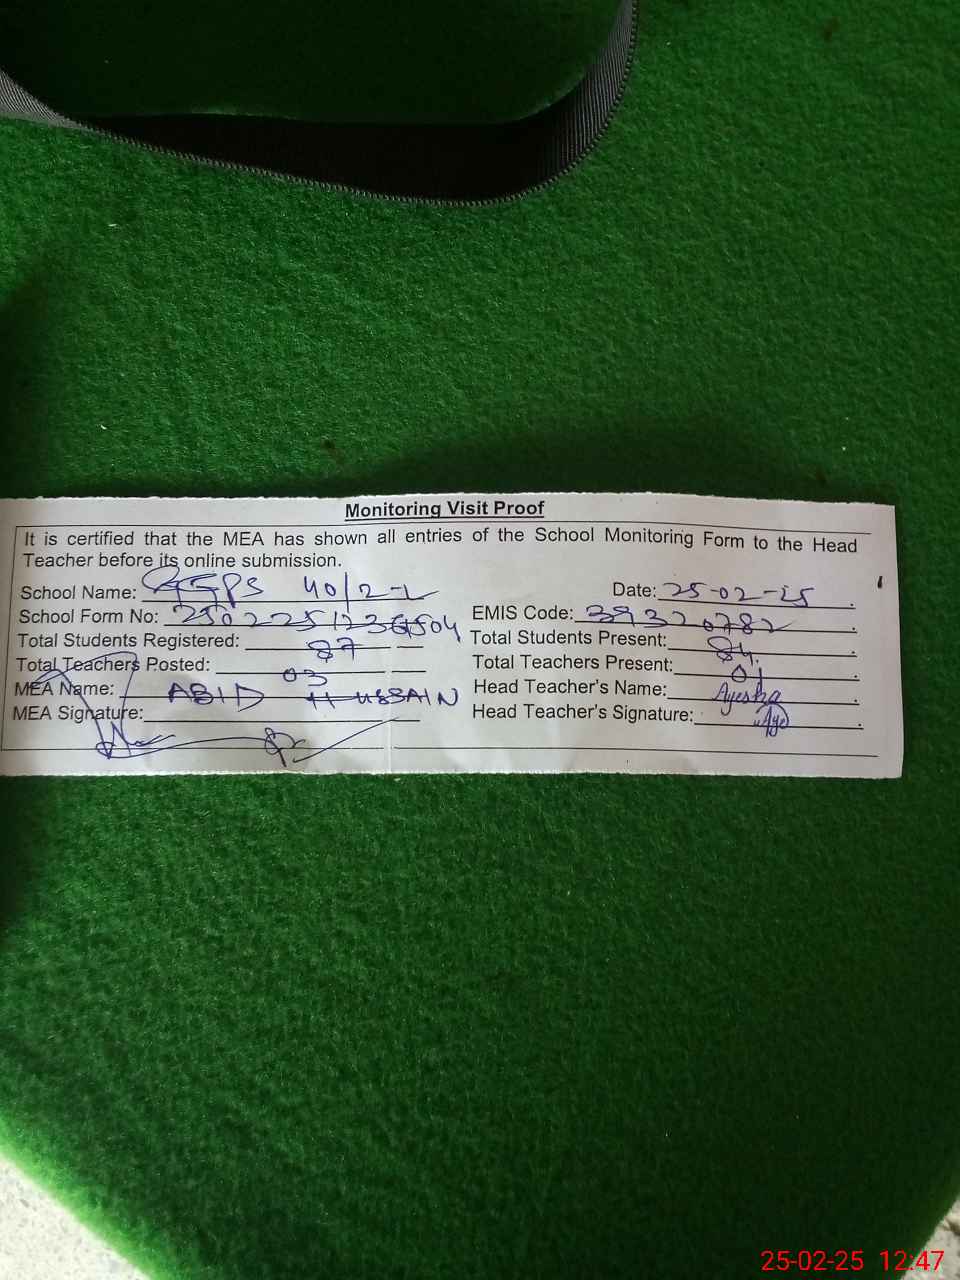 Monitoring Visit Proof
It is certified that the MEA has shown all entries of the School Monitoring Form to the Head
Teacher before its online submission.
School Name: GGPS 40/2-L Date: 25-02-25
School Form No: EMIS Code: 39320782
Total Students Registered: 87 Total Students Present: 84
Total Teachers Posted: 03 Total Teachers Present: 01
MEA Name: ABID HUSSAIN Head Teacher's Name: Ayesha
MEA Signature: Head Teacher's Signature:
25-02-25 12:47